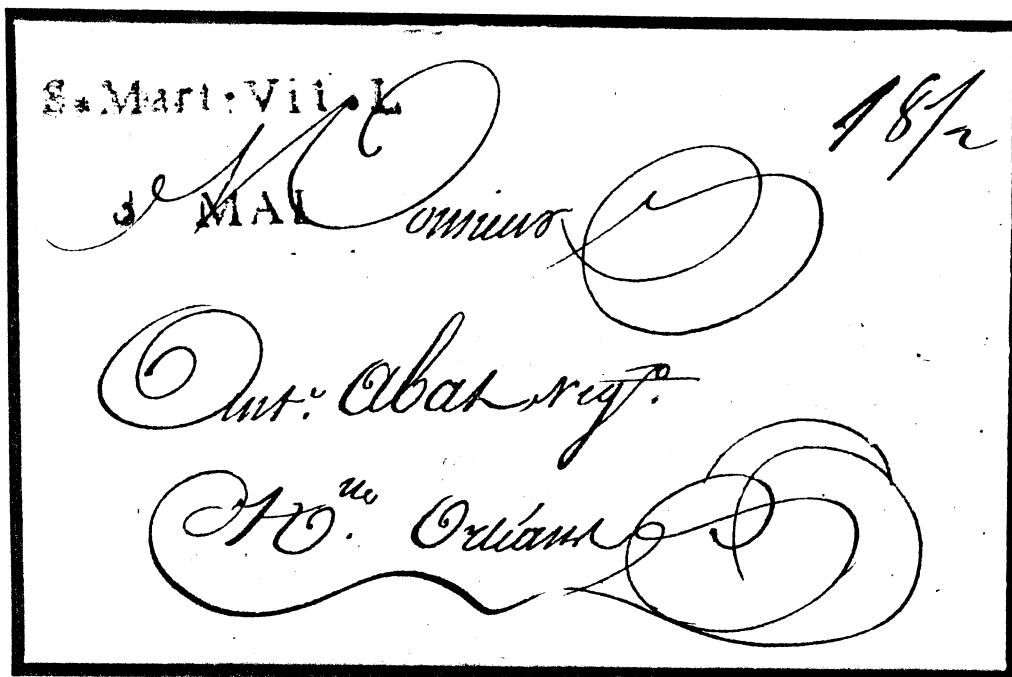 S. Mart. Vil. L
18 1/2
3 MAI
Monsieur
Ant.e Abat neg.t
N.lle Orléans